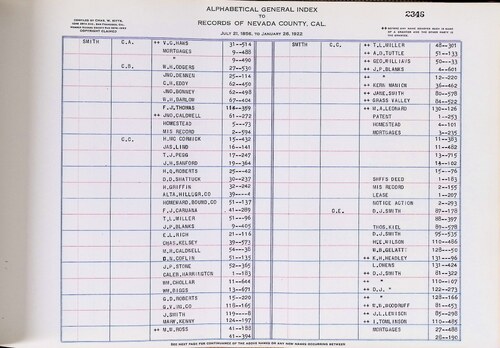 COMPILED BY CHAS. W. BITTS,
COPYRIGHT CLAIMED
ALPHABETICAL GENERAL INDEX
TO
RECORDS OF NEVADA COUNTY, CAL.
JULY 21, 1856, TO JANUARY 28, 1922
2346
SMITH C.A. ++ V.G. HAWS 31-514
MORTGAGES 9-488
" 9-490
C.B. ++ W.H. ODGERS 27-530
JNO. DENNEN 25-114
C.H. EDDY 62-450
JNO. BONNEY 62-498
B.H. BARLOW 67-404
F.J. THOMAS
++ JNO. CALDWELL 61-272
HOMESTEAD 5---73
MIS RECORD 2-594
C.C. H. MC CORMICK 15-432
JAS. LIND 16-141
T.J. PEGG 17-247
J.H. SANFORD 19-364
H.G. ROBERTS 25-42
D.D. SHATTUCK 30-237
H. GRIFFIN 32-242
ALTA, HILLGR. CO 39---4
HOMEWARD, BOUND, CO 51-137
F.J. CARUANA 41-289
T.L. MILLER 51--96
J.P. BLANKS 9-405
E.L. RICH 21-116
CHAS. KELSEY 39-573
W.R. CALDWELL 54--38
D.N. COFLIN 51-135
J.F. STONE 52-365
CALER, HARRINGTON 1-183
WM. CHOLLAR 11-644
WM. BIGGS 13-671
G.D. ROBERTS 15-228
G.V. IM. CO 118-165
J. SMITH 119---8
MARW. KENNY 124-197
++ M.M. ROSS 41-188
41-394
SMITH C.C. ++ T.L. MILLER 48-301
++ A.D. TUTTLE 51-133
++ GEO. WILLIAMS 50--33
++ J.P. BLANKS 4-601
++ " 12-220
++ KERN MANION 36-462
++ JANE. SMITH 80-578
++ GRASS VALLEY 84-522
++ M.A. LEONARD 130-126
PATENT 1-253
HOMESTEAD 4-101
MORTGAGES 3-235
11-383
11-482
13-715
14-102
15--76
SHFFS DEED 1-183
MIS RECORD 2-155
LEASE 1-207
NOTICE ACTION 2-293
D.E. D.J. SMITH 87-178
88-397
THOS. KIEL 89-578
D.J. SMITH 95-535
HLEL. NILSON 110-486
W.B. GELATT 128--50
++ K.H. HEADLEY 131--96
L. OWENS 131-424
++ D.J. SMITH 81-322
++ " 110-107
++ D.J. " 122-273
++ " 128-166
++ M.B. WOODRUFF 81-453
++ J.L. LEWISON 85-298
++ I. TOMLINSON 110-405
MORTGAGES 27-480
28-190
SEE NEXT PAGE FOR CONTINUANCE OF THE ABOVE NAMES OR ANY NEW NAMES OCCURRING BETWEEN